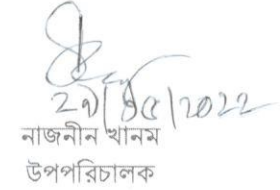 29/05/2022
নাজনীন খানম
উপপরিচালক